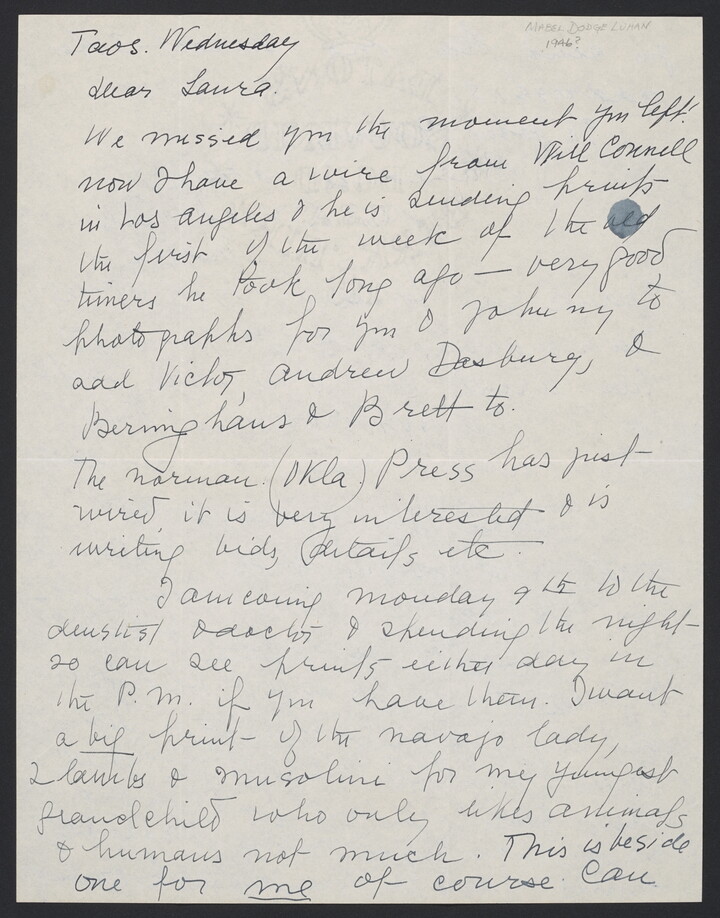 MABEL DODGE LUHAN
1946?
Taos. Wednesday
Dear Laura.
We missed you the moment you left!
now I have a wire from Will Connell
in Los angeles & he is sending prints
the first of the week of the old
timers he took long ago — very good
photographs for you & Johnny to
add Victor, Andrew Dasburg, &
Berninghaus & Brett to.
The norman. (Okla.) Press has just
wired it is very interested & is
writing bids, details etc.
I am coming monday 9th to the
dentist & doctor & spending the night
so can see prints either day in
the P.M. if you have them. I want
a big print of the navajo lady,
2 lambs & Musolini for my youngest
grandchild who only likes animals
& humans not much. This is beside
one for me of course. Can